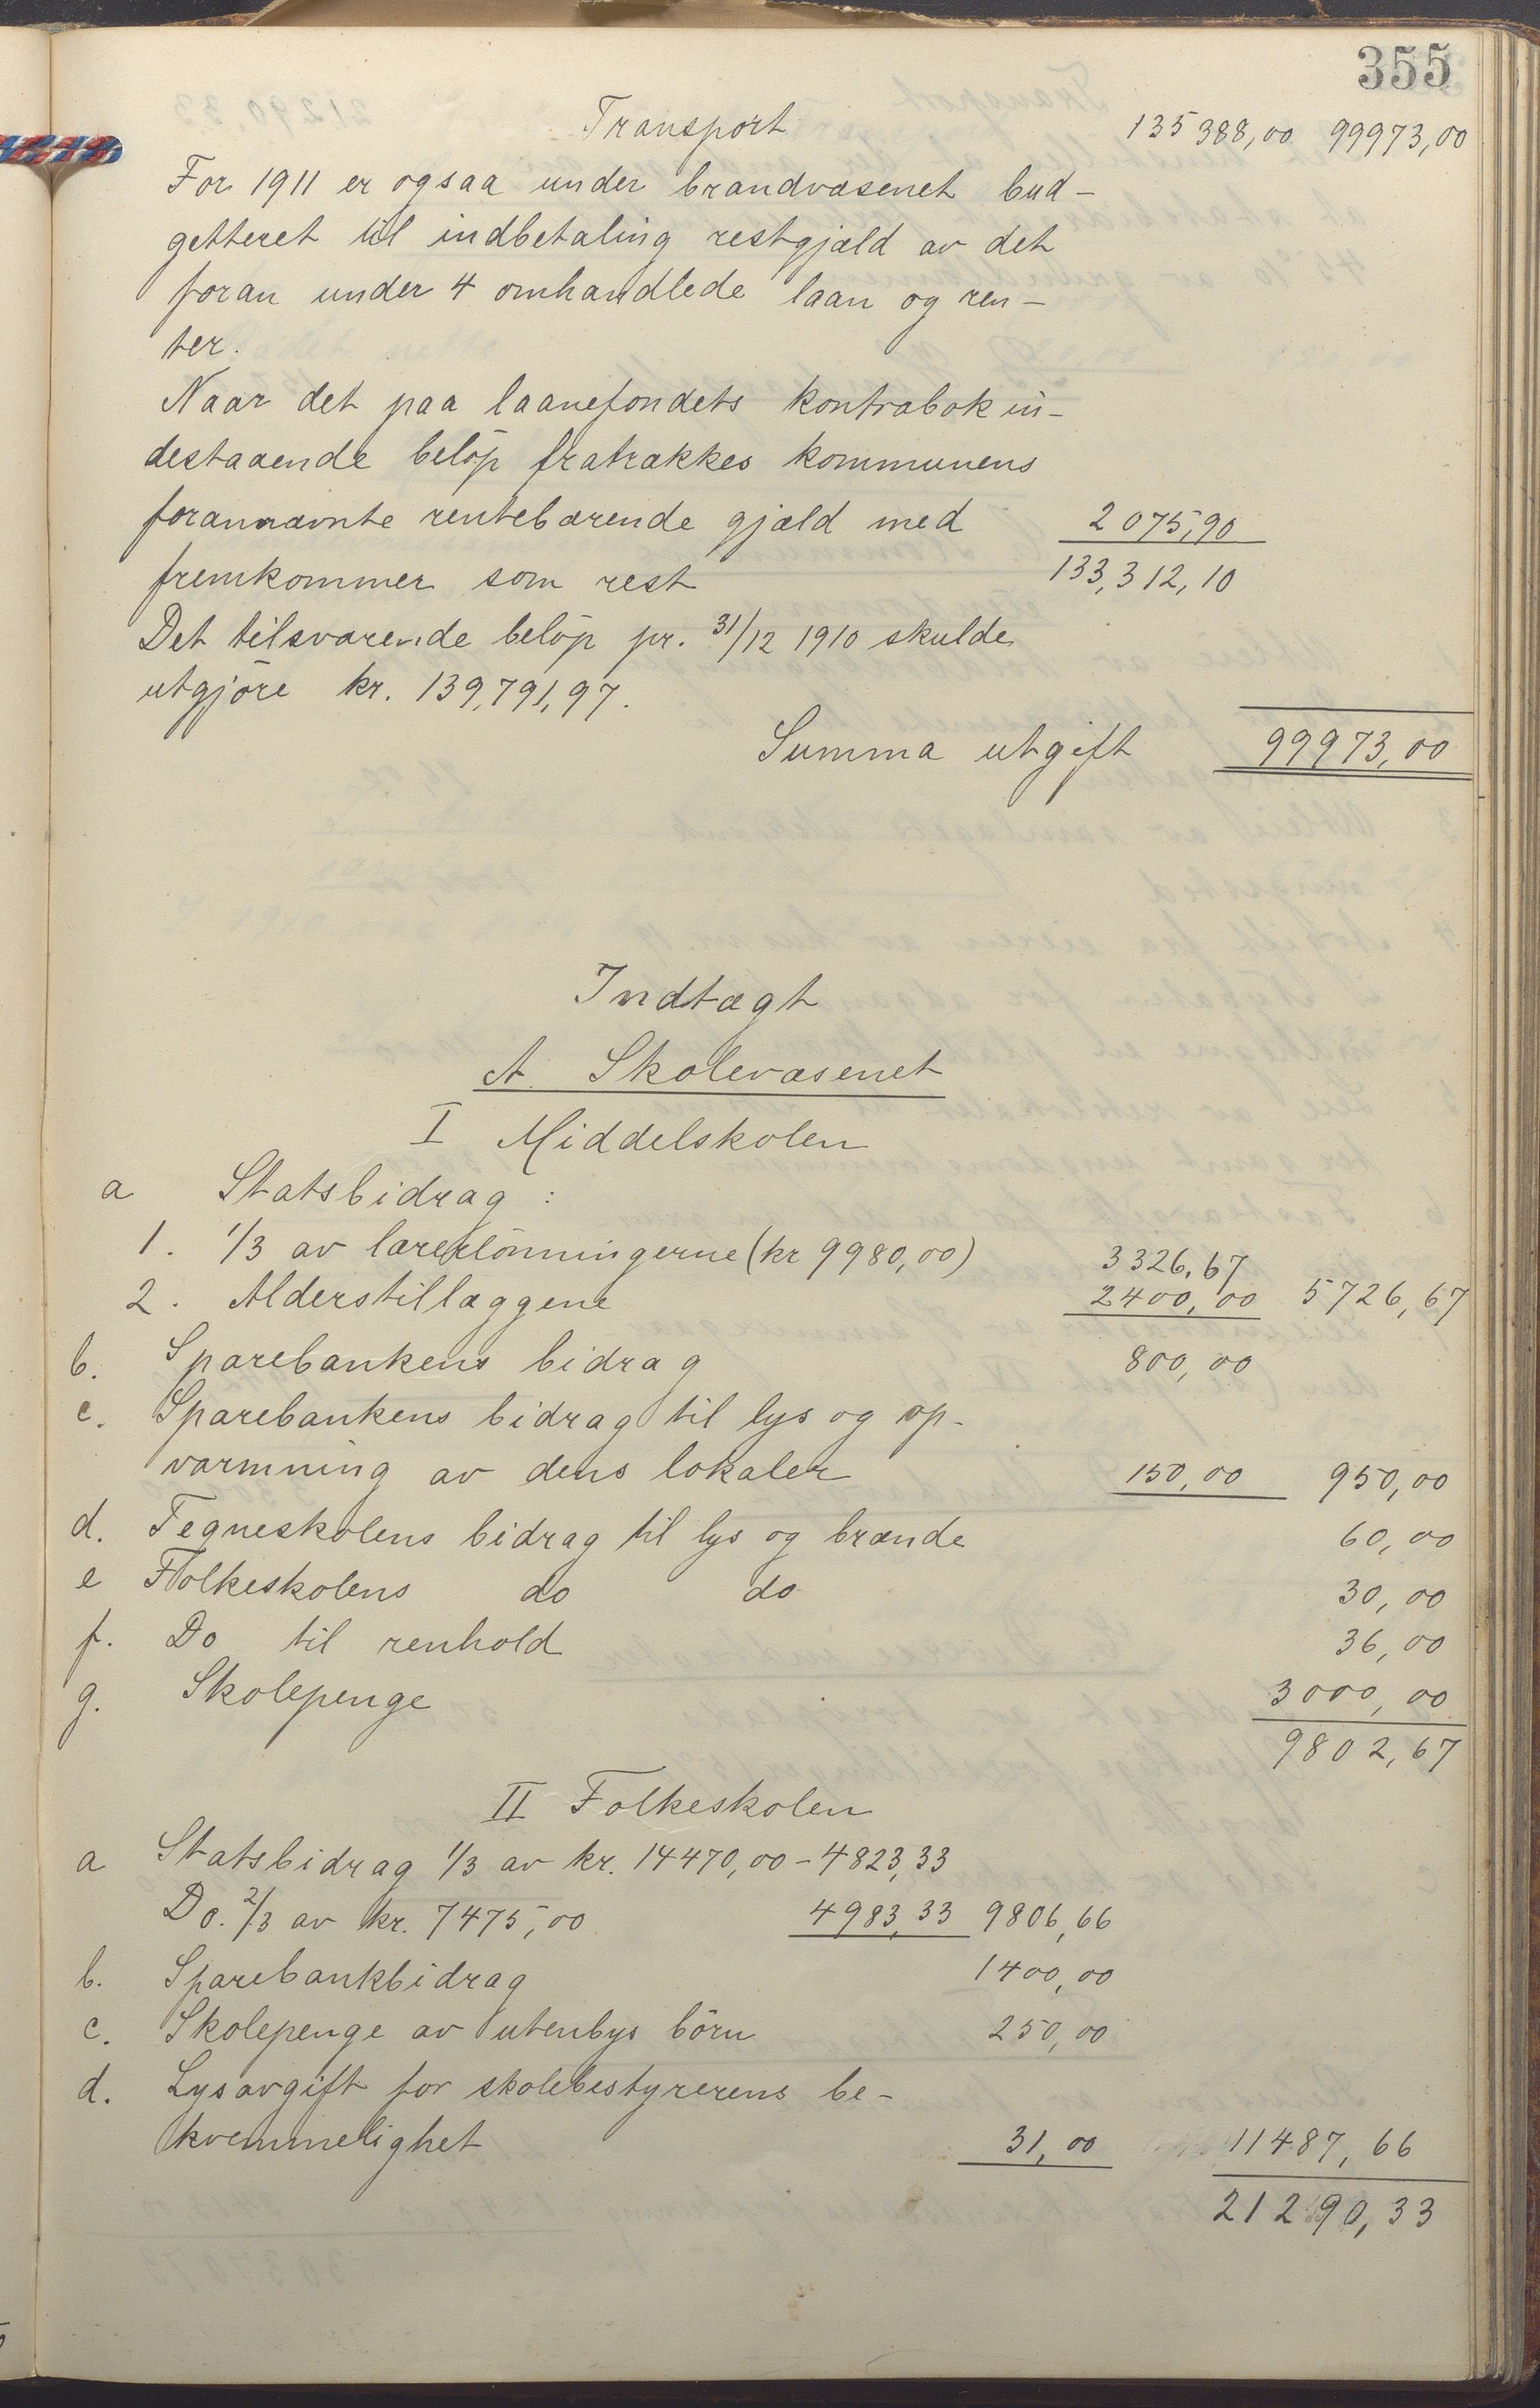 355
Transport 135 388,00 99973,00
For 1911 er ogsaa under brandvæsenet bud-
getteret til indbetaling restgjæld av det
foran under 4 omhandlede laan og ren-
ter.
Naar det paa laanefondets kontrabok in-
destaaende beløp fratrækkes kommunens
forannævnte rentebærende gjæld med 2 075,90
fremkommer som rest 133,312,10
Det tilsvarende beløp pr. 31/12 1910 skulde
utgjöre kr. 139,791,97.
Summa utgift 99973,00
Indtægt
A. Skolevæsenet
I Middelskolen
a Statsbidrag :
1. 1/3 av lærerlönningerne (kr 9980,00) 3326,67
2. Alderstillæggene 2400,00 5726,67
b. Sparebankens bidrag 800,00
c. Sparebankens bidrag til lys og op-
varmning av dens lokaler 150,00 950,00
d. Tegneskolens bidrag til lys og brænde 60,00
e Folkeskolens do do 30,00
f. Do til renhold 36,00
g. Skolepenge 3000,00
9802,67
II Folkeskolen
a Statsbidrag 1/3 av kr. 14470,00 - 4823,33
Do. 2/3 av kr. 7475,00 4983,33 9806,66
b. Sparebankbidrag 1400,00
c. Skolepenge av utenbys börn 250,00
d. Lysavgift for skolebestyrerens be-
kvemmelighet 31,00 11487,66
21290,33